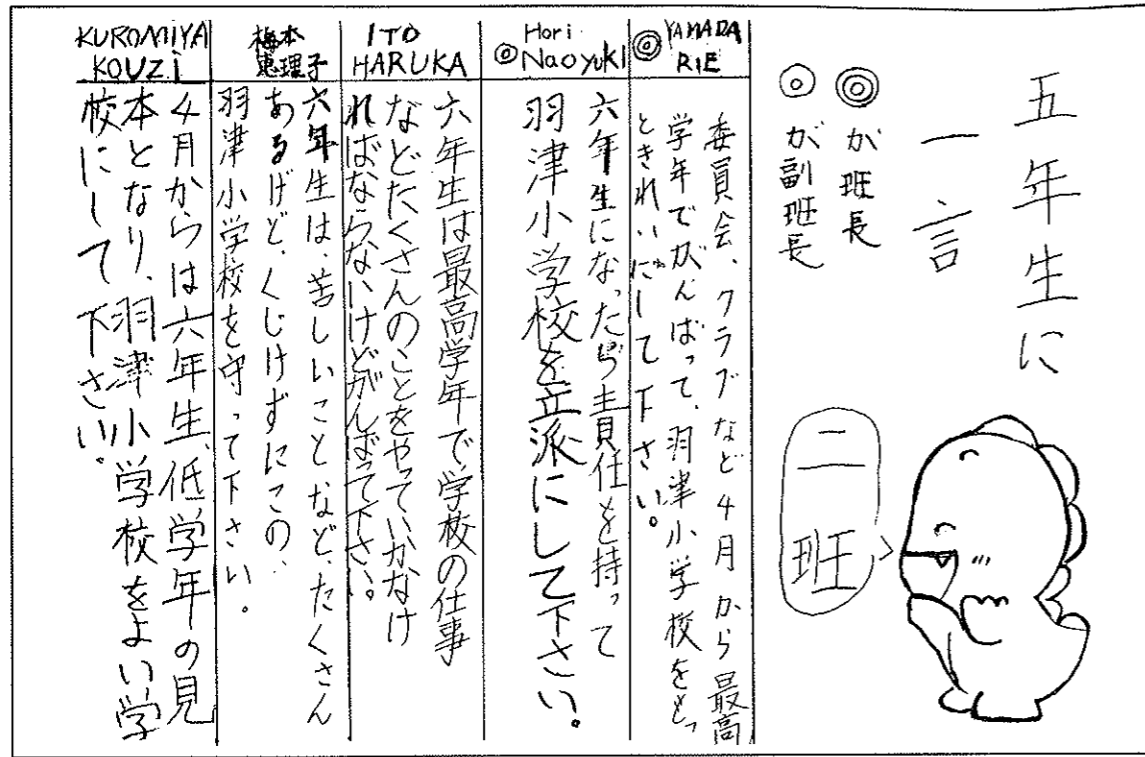 五年生に
一言
◎が班長
○が副班長
二班
◎YAMADA
RIE
委員会、クラブなど4月から最高
学年でがんばって、羽津小学校をもっ
ときれいにして下さい。
Hori
◎Naoyuki
六年生になったら責任を持って
羽津小学校を立派にして下さい。
ITO
HARUKA
六年生は最高学年で、学校の仕事
などたくさんのことをやっていかなけ
ればならないけどがんばって下さい。
梅本
恵理子
六年生は、苦しいことなど、たくさん
あるけど、くじけずにこの、
羽津小学校を守って下さい。
KUROMIYA
KOUZi
4月からは六年生、低学年の見
本となり、羽津小学校をよい学
校にして下さい。